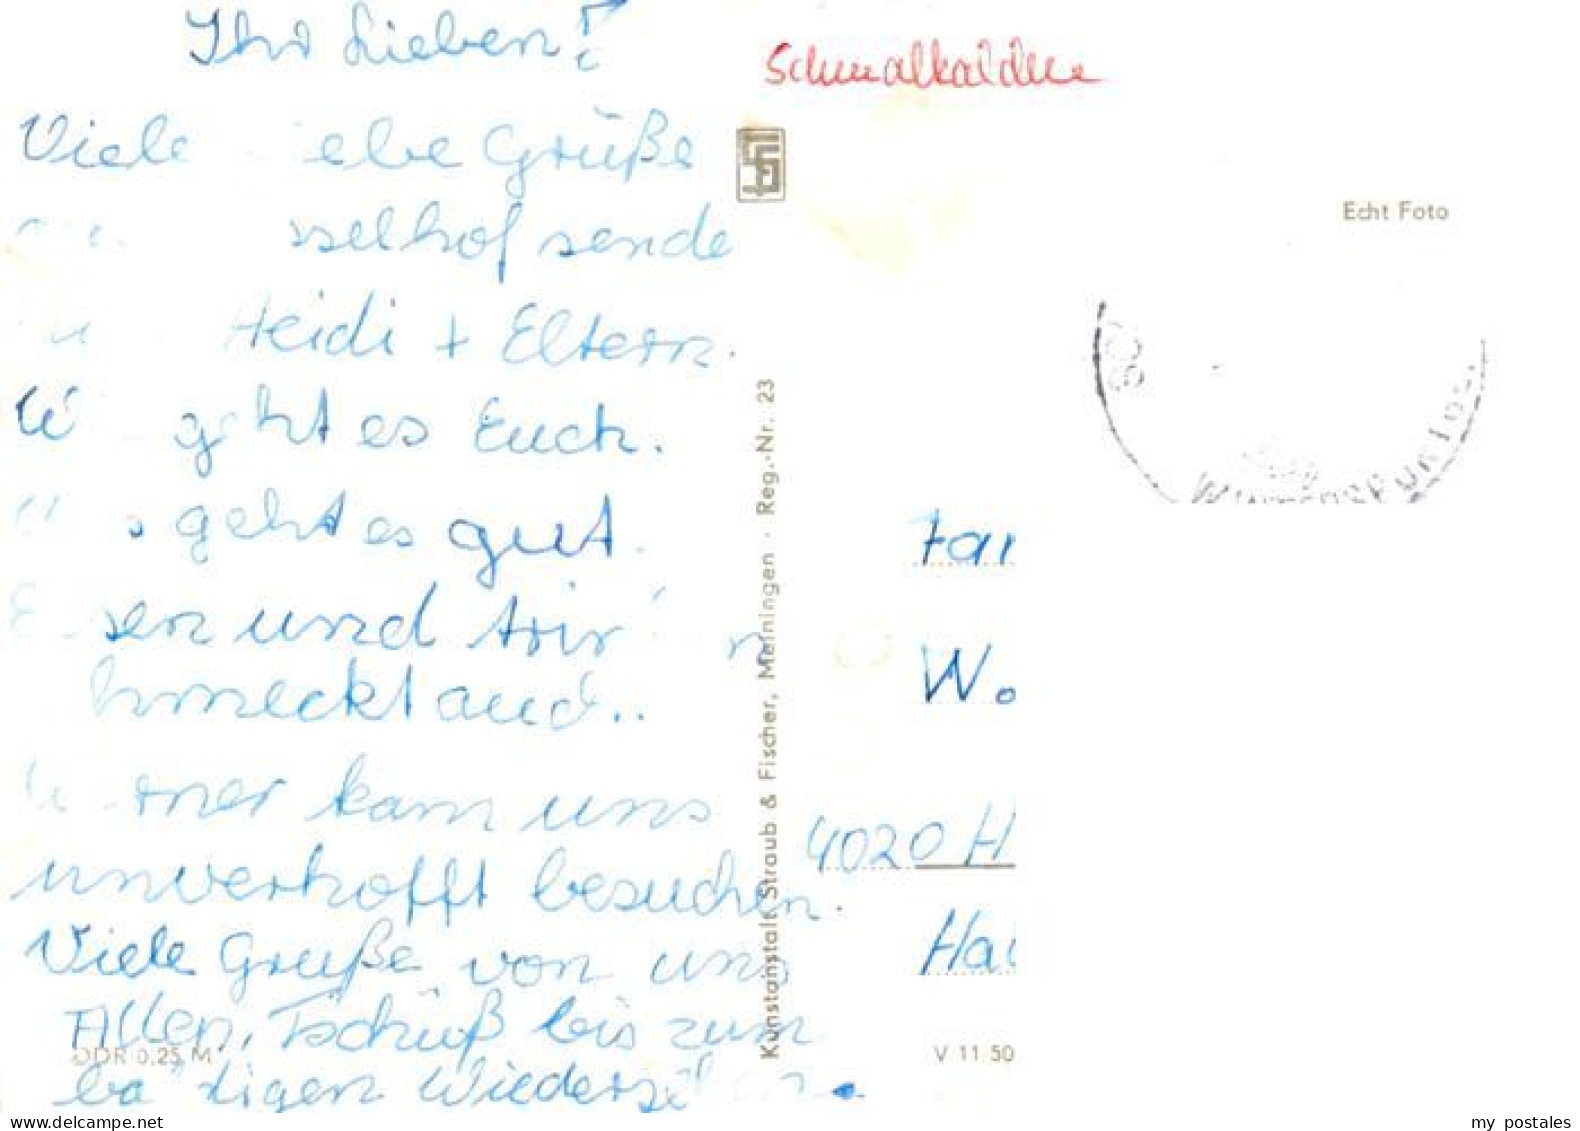 Ihr Lieben!
Viele ebe Grüße
sselhof sende
Heidi + Eltern.
geht es Euch.
geht es gut.
sen und trin
hmeckt auch..
rner kam uns
unverhofft besuchen.
Viele Grüße von uns
Allen, Tschüß bis zum
digen Wiederse
DDR 0,25 M
Schmalkalden
Kunstanstalt Straub & Fischer, Meiningen · Reg.-Nr. 23
Echt Foto
Fam
Wo
4020 H
Hal
V 11 50
my postales